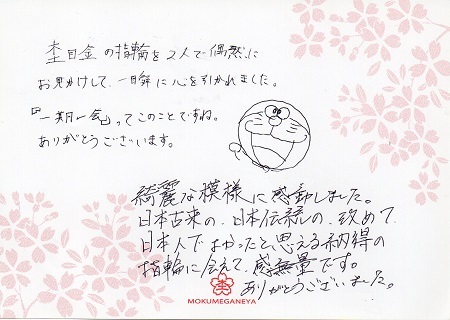 杢目金の指輪を2人で偶然に
お見かけして、一瞬に心を引かれました。
『一期一会』ってこのことですね。
ありがとうございます。
綺麗な模様に感動しました。
日本古来の、日本伝統の、改めて、
日本人でよかったと思える納得の
指輪に会えて、感無量です。
ありがとうございました。
MOKUMEGANEYA